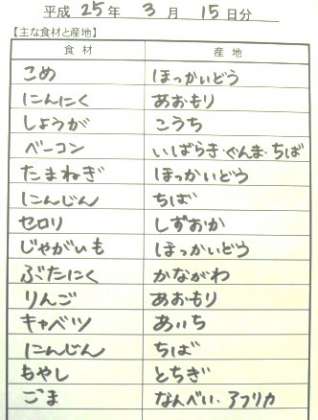 平成 25 年 3 月 15 日分
【主な食材と産地】
食材 産地
こめ ほっかいどう
にんにく あおもり
しょうが こうち
ベーコン いばらき・ぐんま・ちば
たまねぎ ほっかいどう
にんじん ちば
セロリ しずおか
じゃがいも ほっかいどう
ぶたにく かながわ
りんご あおもり
キャベツ あいち
にんじん ちば
もやし とちぎ
ごま なんべい・アフリカ